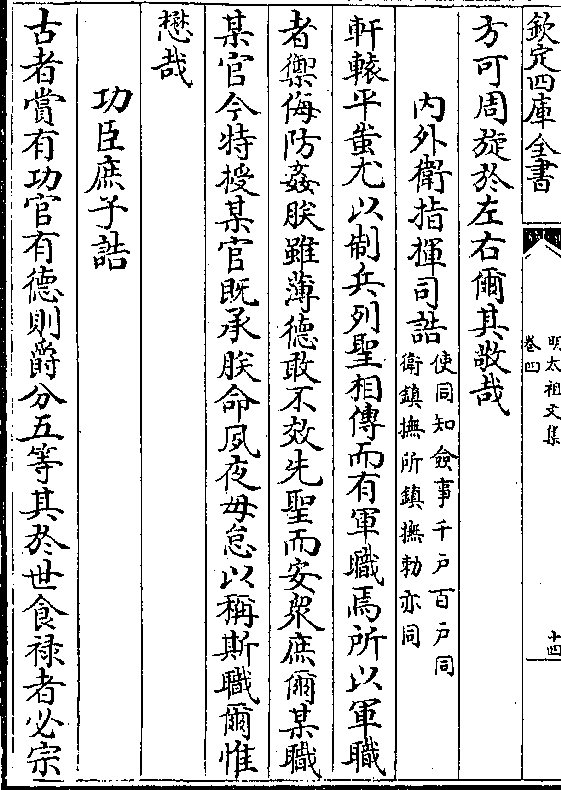 欽定四庫全書
明太祖文集
卷四
十四
方可周旋於左右爾其敬哉
內外衛指揮司誥
使同知僉事千戶百戶同
衛鎮撫所鎮撫勅亦同
軒轅平蚩尤以制兵列聖相傳而有軍職焉所以軍職
者禦侮防姦朕雖薄德敢不效先聖而安衆庶爾某職
某官今特授某官既承朕命夙夜毋怠以稱斯職爾惟
懋哉
功臣庶子誥
古者賞有功官有德則爵分五等其於世食禄者必宗